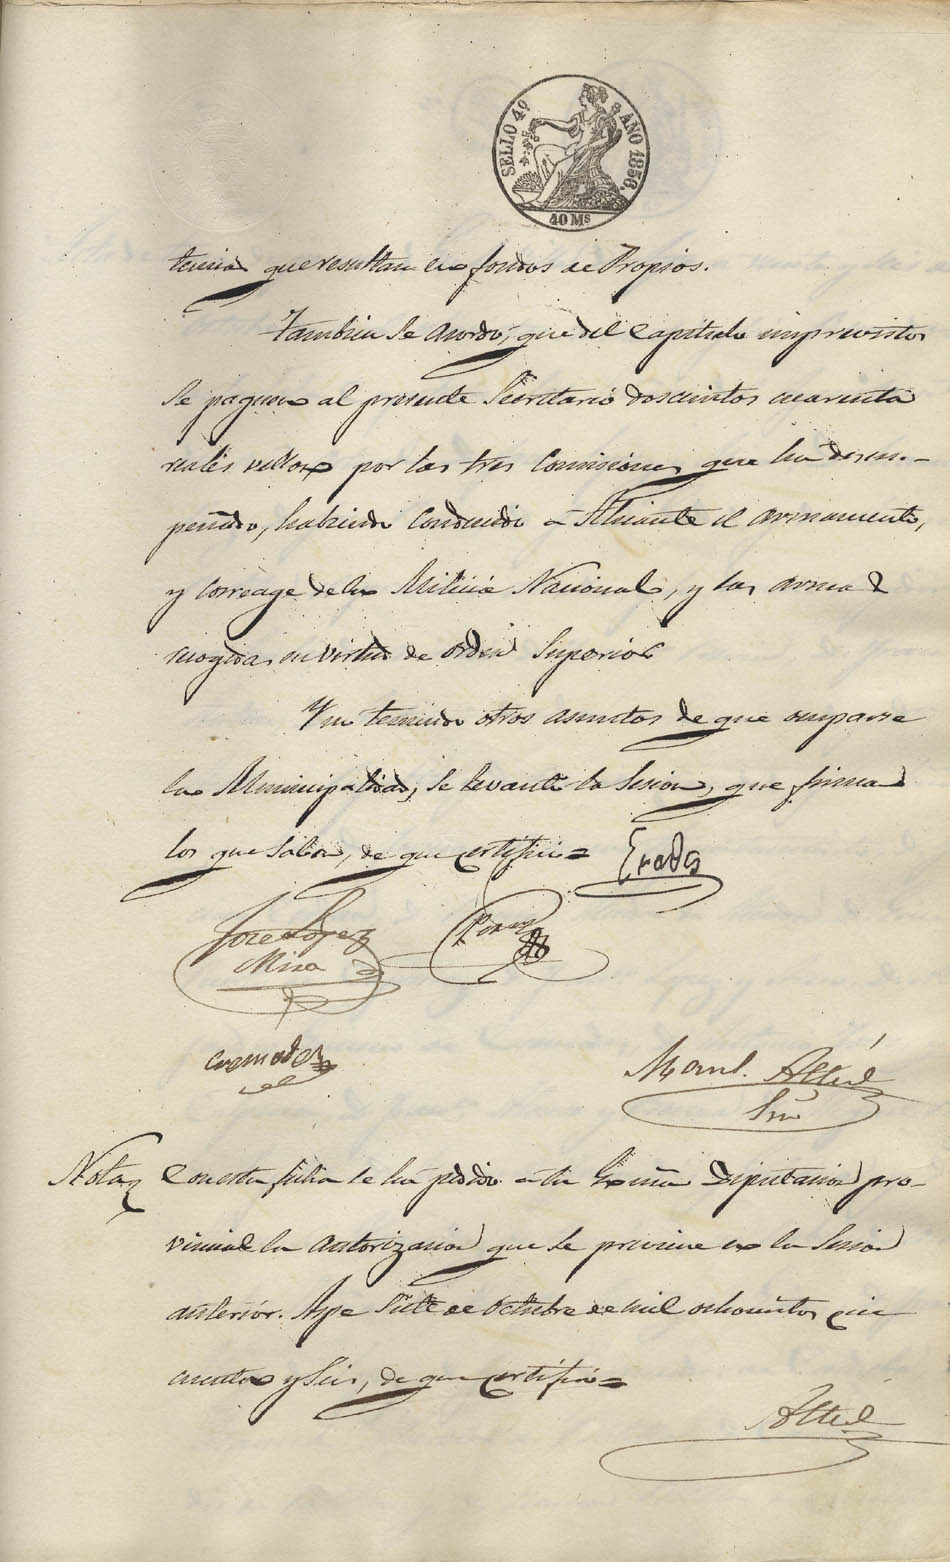 SELLO 4º AÑO 1856.
40 Ms
que resultan en fondos de Propios.
Tambien se acordó, que del Capitulo imprevistos
se paguen al presente Secretario doscientos cuarenta
reales vellon por las tres Comisiones que ha desem-
peñado, habiendo conducido á Alicante el armamento,
y correage de la Milicia Nacional, y las armas
recogidas en virtud de orden Superior
Y no teniendo otros asuntos de que ocuparse
la Municipalidad, se levantó la Sesion, que firman
los que saben, de que certifico=
José Lopez
Mira
Cremades
Manl. Alted
Srio
Nota
Con esta fecha se ha pedido á la Exma Diputacion pro-
vincial la autorizacion que se previene en la Sesion
anterior. Aspe Siete de Octubre de mil ochocientos cin
cuenta y Seis, de que certifico=
Alted